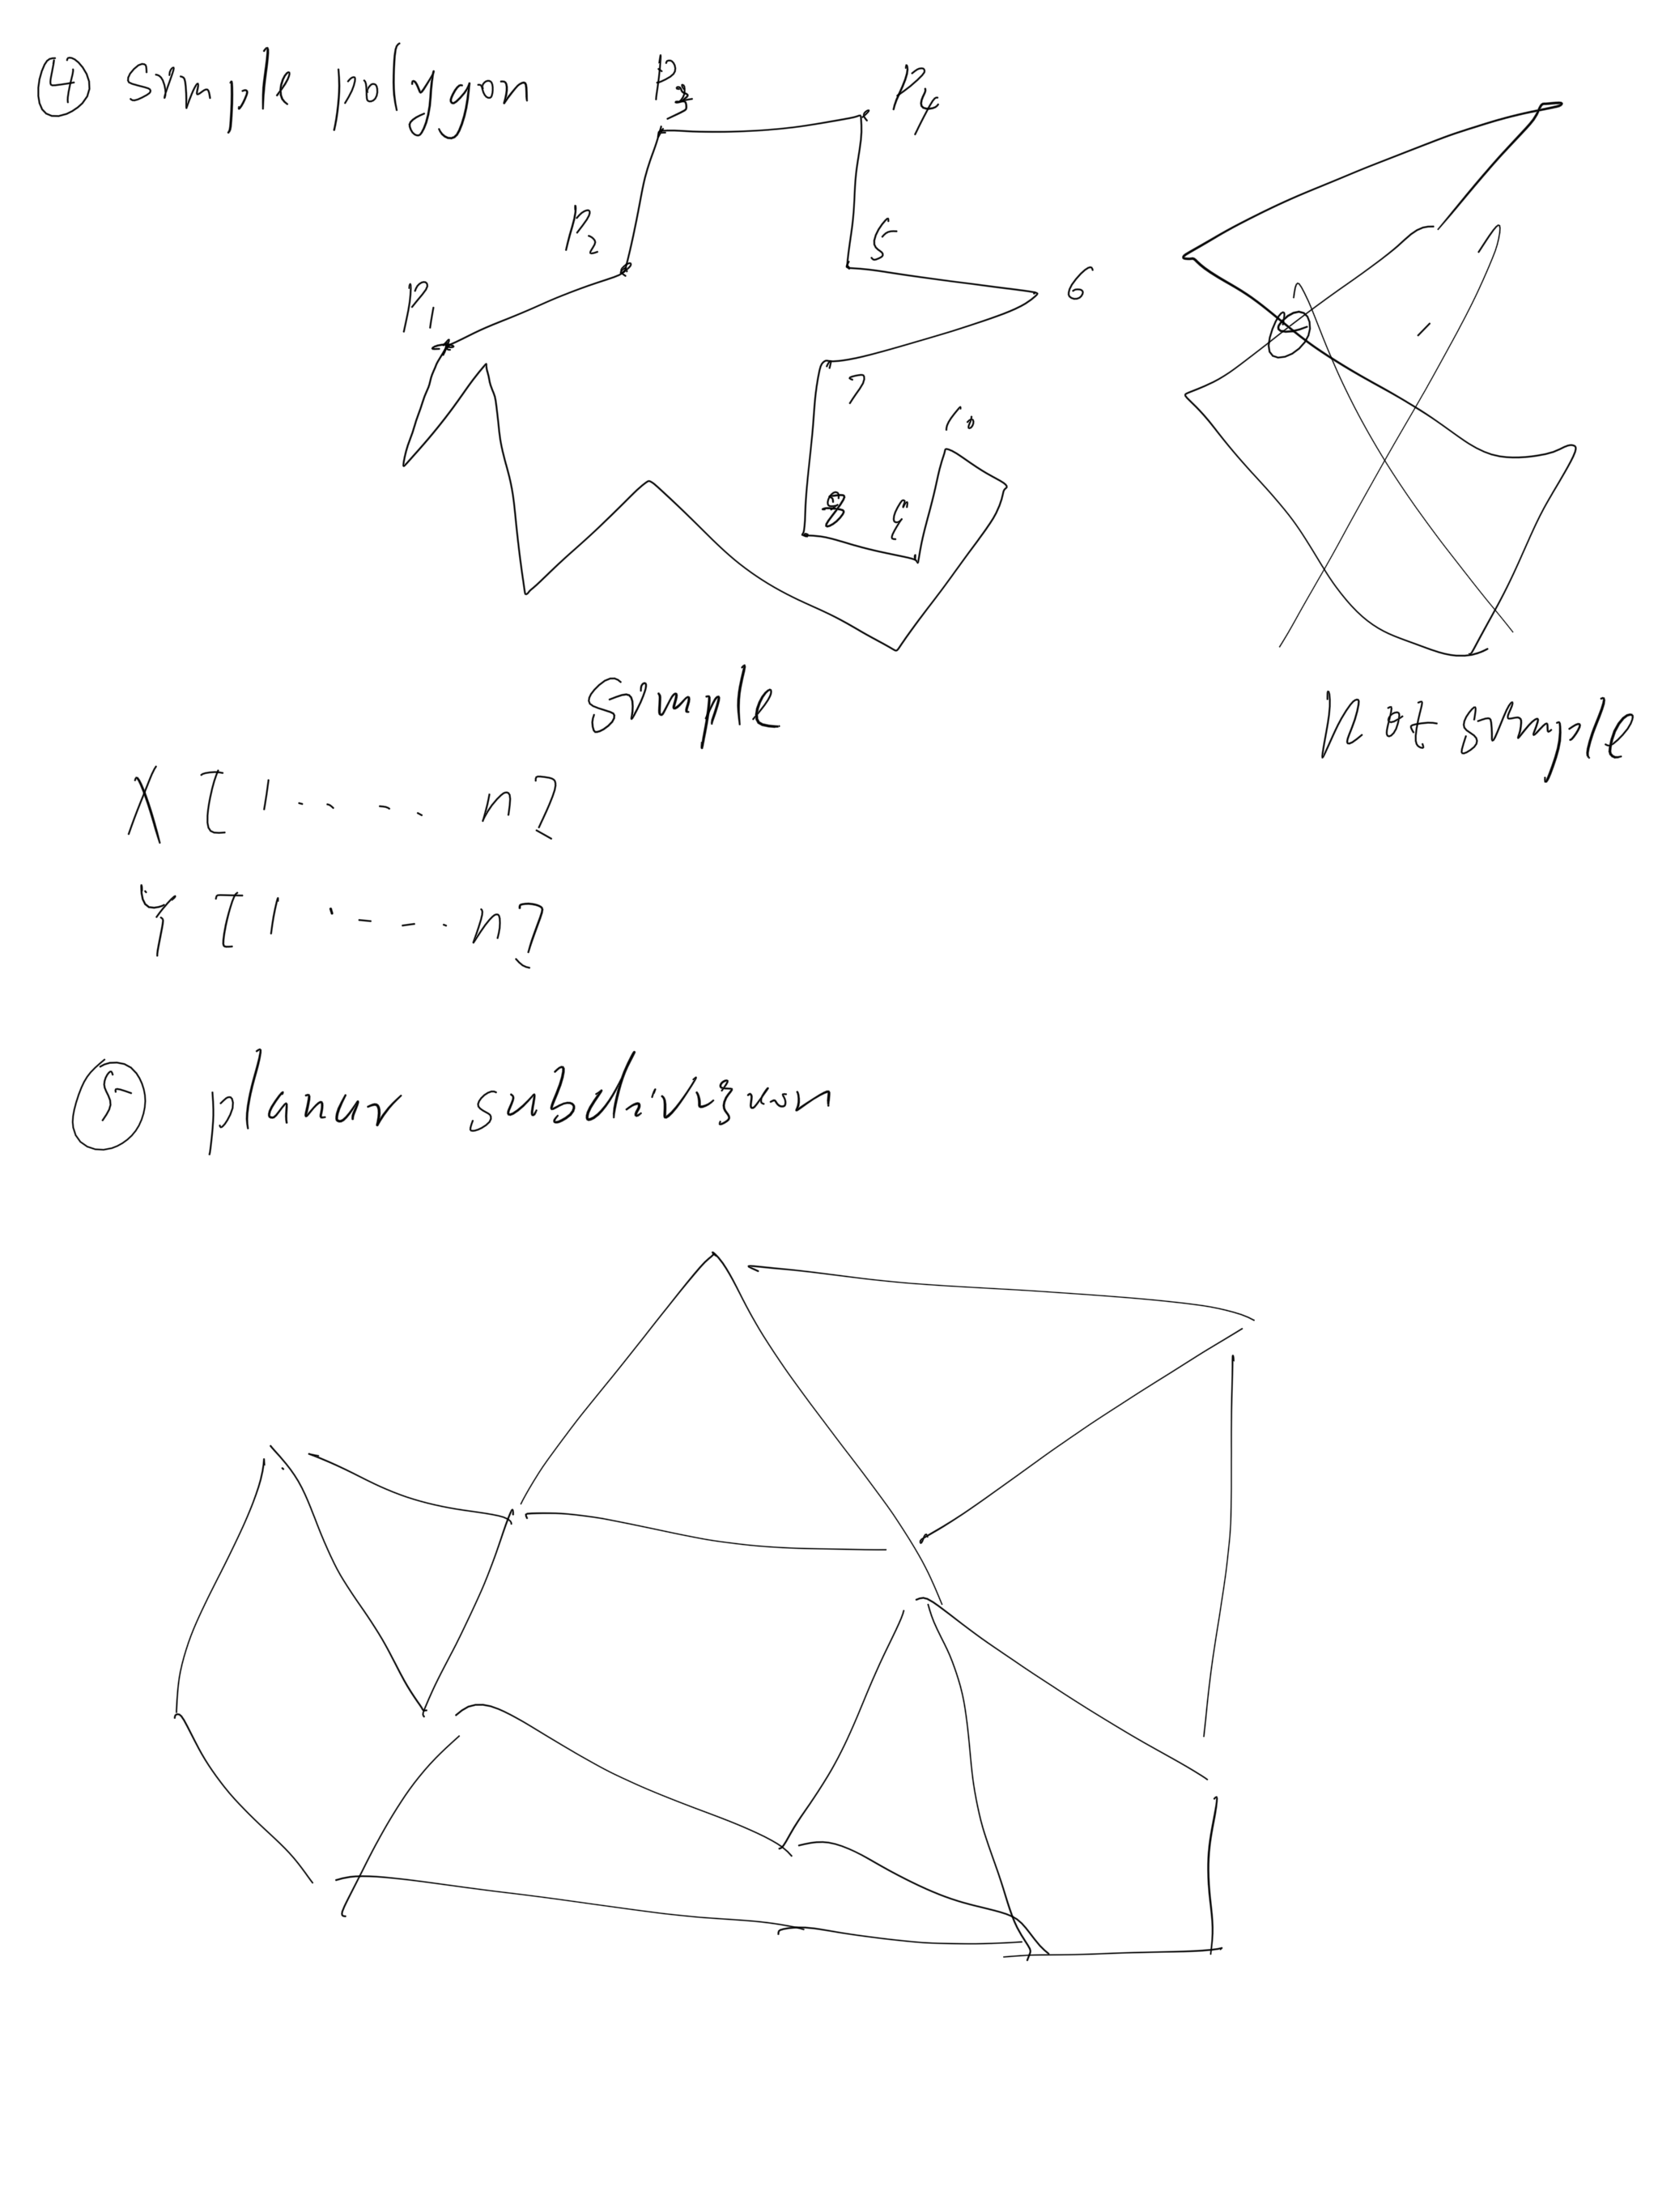 ④ simple polygon
P3
P4
P2
5
P1
6
7
10
8
9
simple
not simple
X [1 ..... n]
Y [1 ..... n]
⑤ planar subdivision